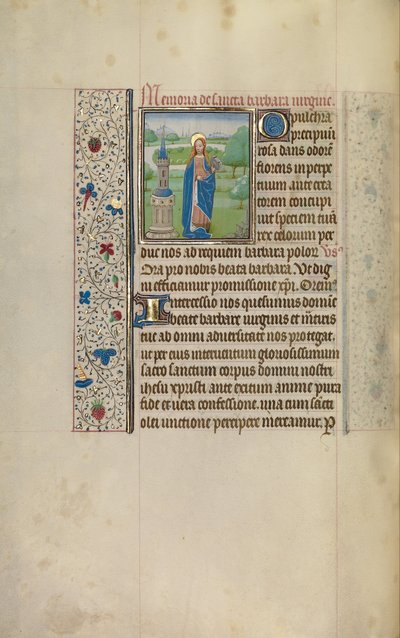 Memoria de sancta barbara virgine.
O pulchra
precipuu
rosa dans odorē
florens in perpe
tuum ante crea
torem concupi
uit speciem tuā
rex celorum per
duc nos ad requiem barbara polor Vs
Ora pro nobis beata barbara. Vt dig
ni efficiamur promissione xp̄i. Orem
Intercessio nos quesumus domine
beate barbare virginis et m̄ris
tue ab omni aduersitate nos protegat.
ut per eius interuentum gloriosissimum
sacro sanctum corpus domini nostri
ihesu xpristi ante exitum anime pura
fide et vera confessione. una cum sācti
olei unctione percipere mereamur. P